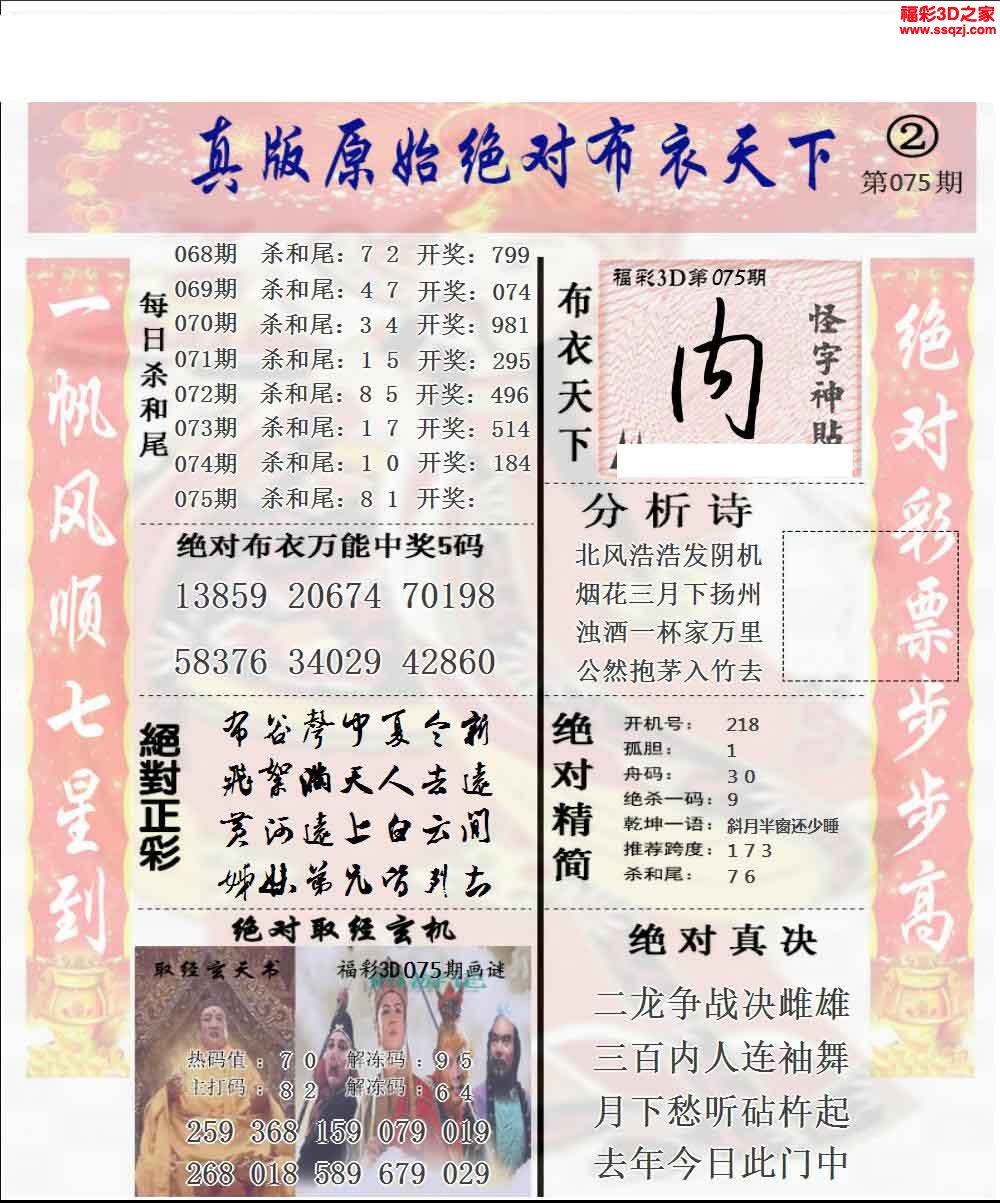 福彩3D之家
www.ssqzj.com
真版原始绝对布衣天下
②
第075期
一帆风顺七星到
每日杀和尾
068期 杀和尾：7 2 开奖：799
069期 杀和尾：4 7 开奖：074
070期 杀和尾：3 4 开奖：981
071期 杀和尾：1 5 开奖：295
072期 杀和尾：8 5 开奖：496
073期 杀和尾：1 7 开奖：514
074期 杀和尾：1 0 开奖：184
075期 杀和尾：8 1 开奖：
绝对布衣万能中奖5码
13859 20674 70198
58376 34029 42860
絕對正彩
布谷聲中夏令新
飛絮滿天人去遠
黄河遠上白云间
姊妹弟兄皆列土
绝对取经玄机
取经玄天书
福彩3D075期画谜
热码值：7 0 解冻码：9 5
主打码：8 2 解冻码：6 4
259 368 159 079 019
268 018 589 679 029
布衣天下
福彩3D第075期
内
怪字神貼
分析诗
北风浩浩发阴机
烟花三月下扬州
浊酒一杯家万里
公然抱茅入竹去
绝对精简
开机号： 218
孤胆： 1
舟码： 3 0
绝杀一码：9
乾坤一语：斜月半窗还少睡
推荐跨度：1 7 3
杀和尾： 7 6
绝对真决
二龙争战决雌雄
三百内人连袖舞
月下愁听砧杵起
去年今日此门中
绝对彩票步步高